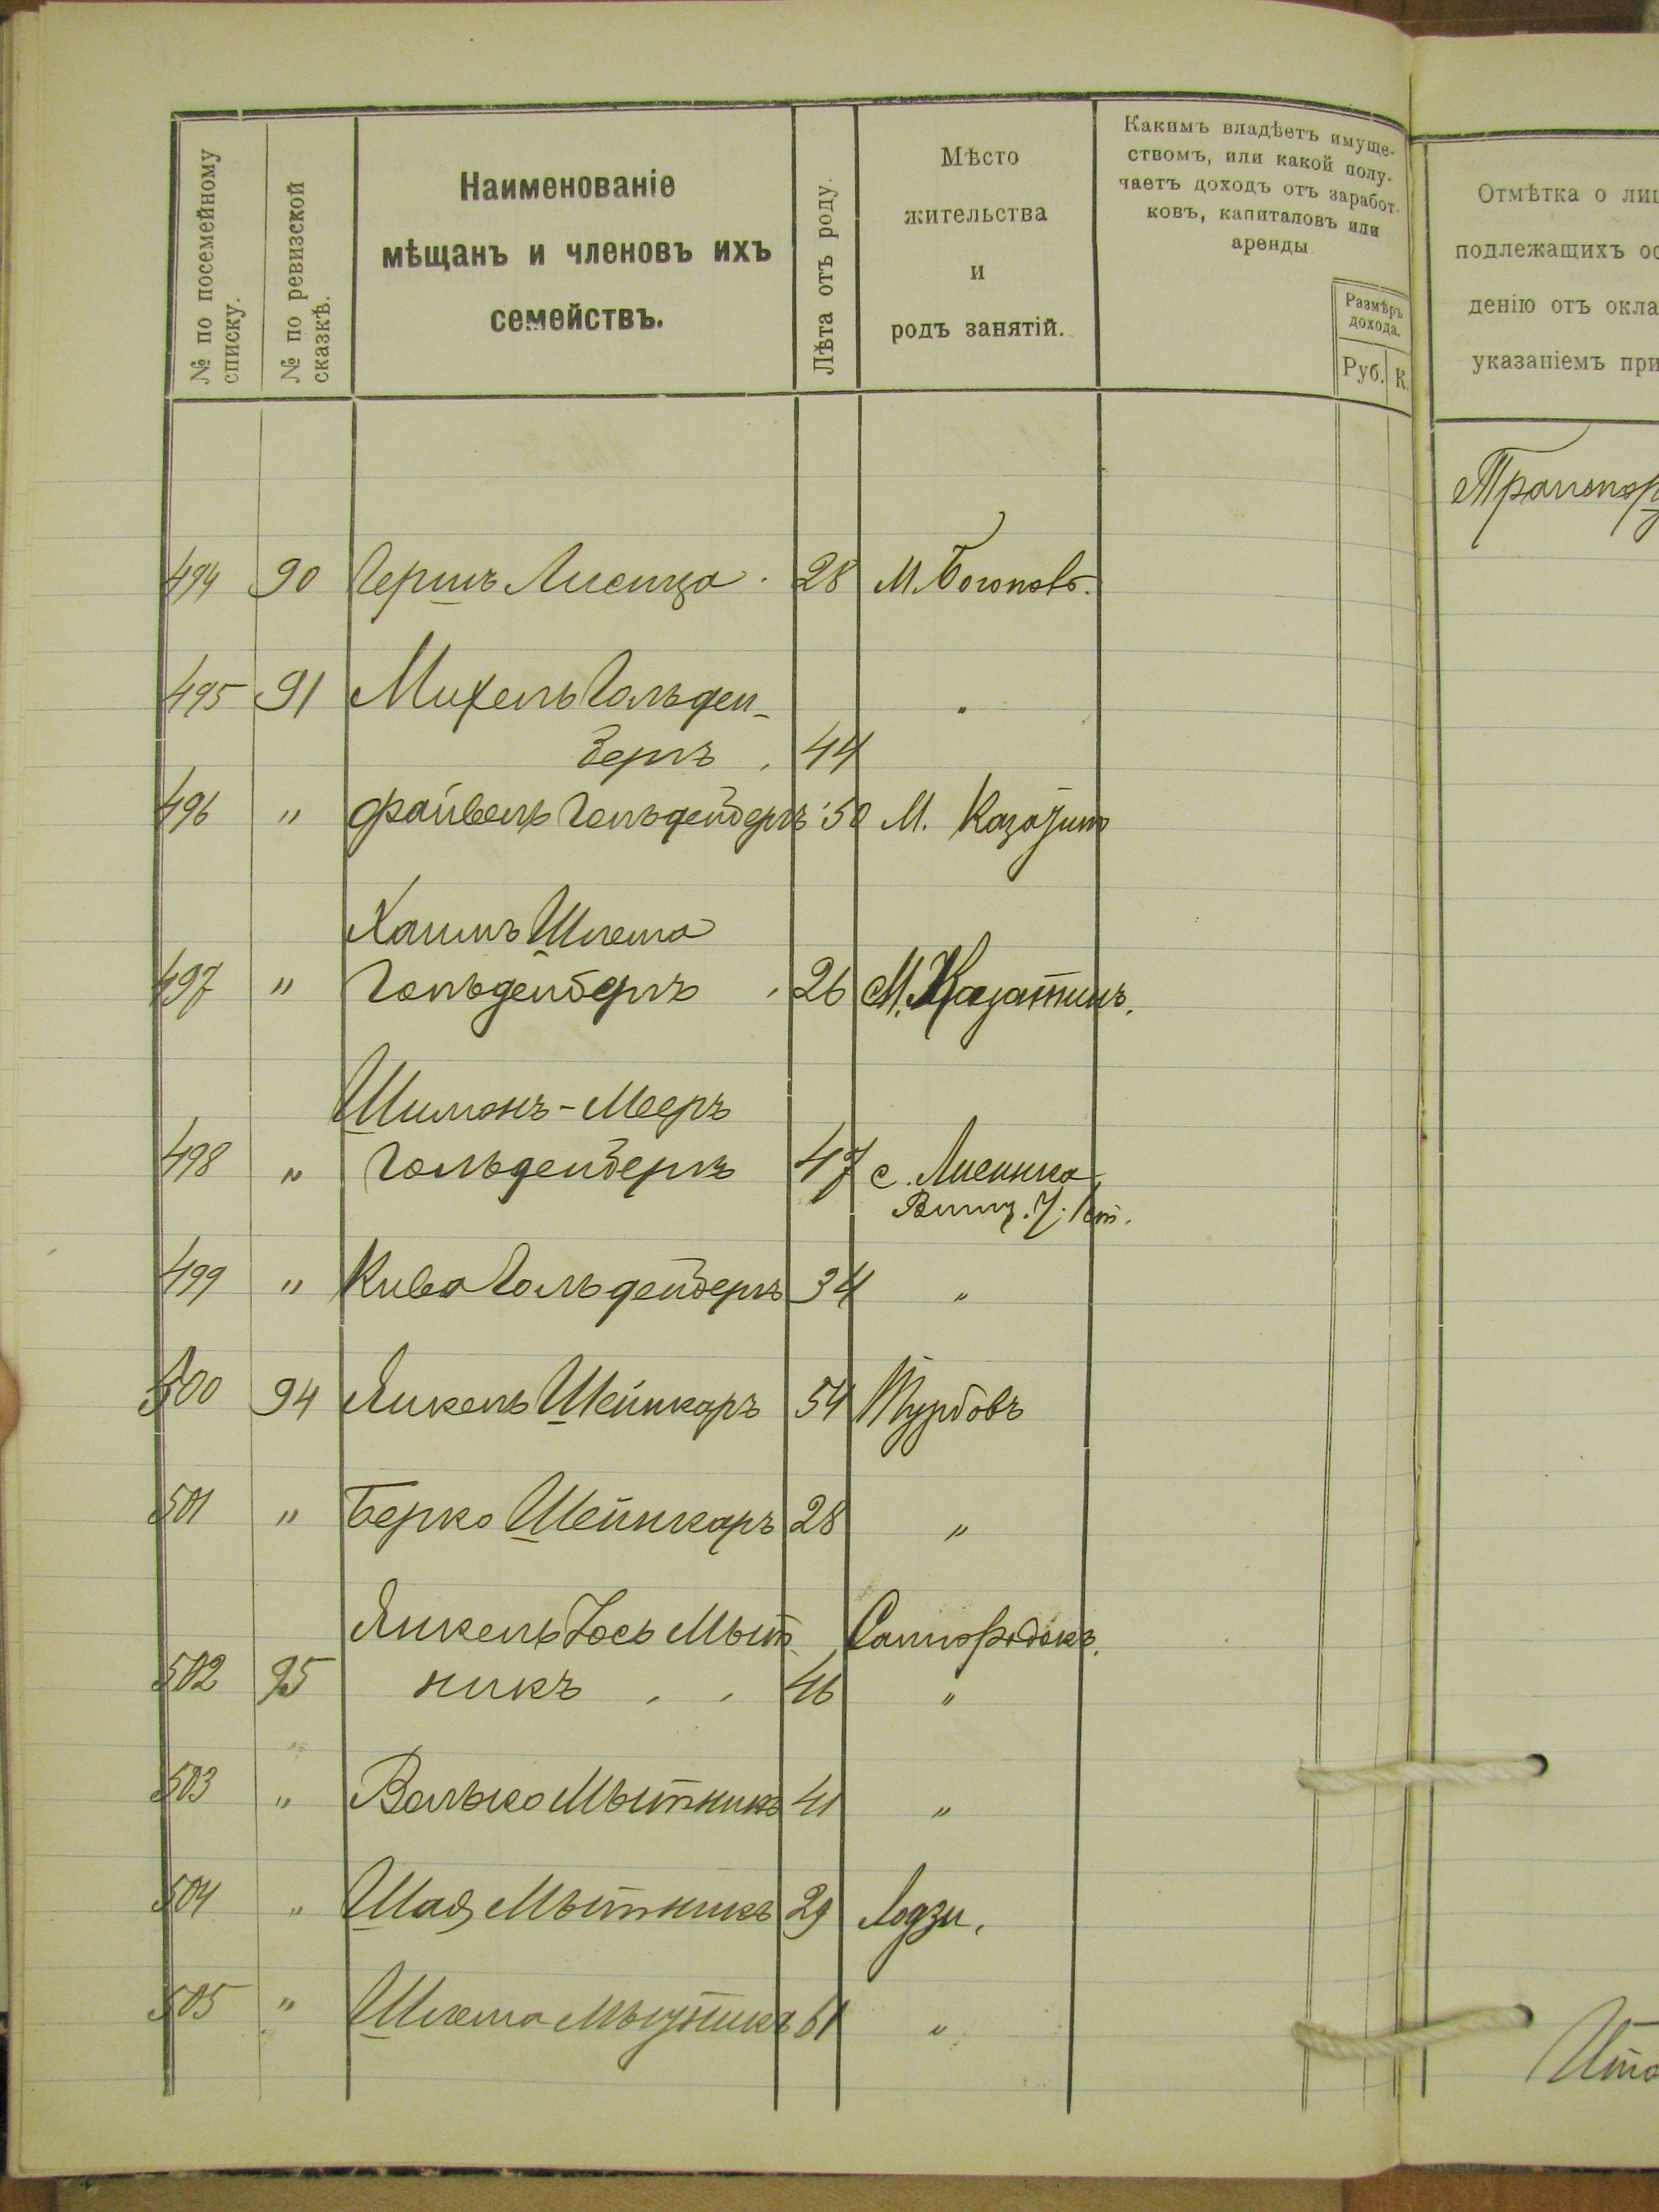 № по посемейному
списку.
№ по ревизской
сказкѣ.
Наименованіе
мѣщанъ и членовъ ихъ
семействъ.
Лѣта отъ роду.
Мѣсто
жительства
и
родъ занятій.
Какимъ владѣетъ имуще-
ствомъ, или какой полу-
чаетъ доходъ отъ заработ-
ковъ, капиталовъ или
аренды
Размѣръ
дохода.
Руб. К.
Отмѣтка о лиц
подлежащихъ ос
денію отъ окла
указаніемъ при
Транспор
494 90 Гершъ Лисица . 28 М. Богоповъ.
495 91 Михель Гольден- "
бергъ . 44
496 " Файвель Гольденбергъ 50 М. Казатин
Хаимъ Шлема
497 " Гольденбергъ . 26 М. Казатинъ.
Шимонъ-Мееръ
498 " Гольденбергъ 47 с.
Винн. у.
499 " Кива Гольденбергъ 34 "
500 94 Янкель Шейнкаръ 54 Турбовъ
501 " Берко Шейнкаръ 28 "
Янкель Іось Мыт Самгородокъ.
502 95 никъ . . 46 "
503 " Валько Мытникъ 41 "
504 " Шая Мытникъ 29 Лодзи.
505 " Шлема Мытникъ 61 "
Ито